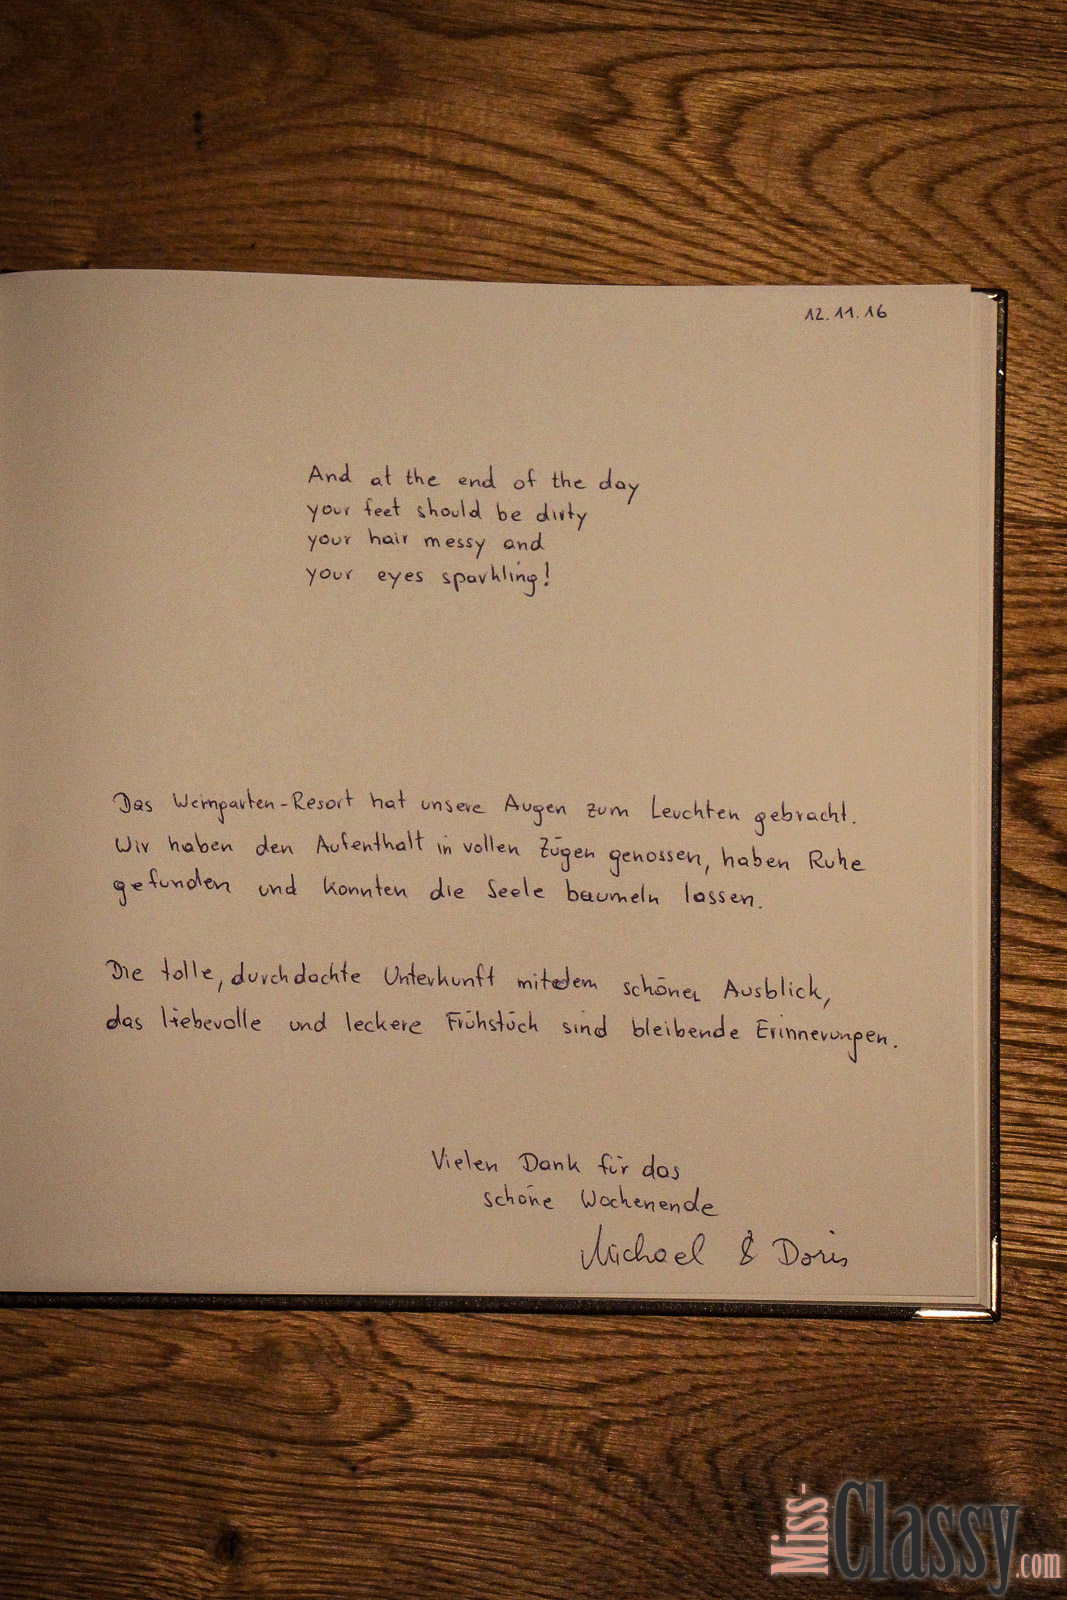 12.11.16
And at the end of the day
your feet should be dirty
your hair messy and
your eyes sparkling!
Das Weingarten-Resort hat unsere Augen zum Leuchten gebracht.
Wir haben den Aufenthalt in vollen Zügen genossen, haben Ruhe
gefunden und konnten die Seele baumeln lassen.
Die tolle, durchdachte Unterkunft mit dem schönen Ausblick,
das liebevolle und leckere Frühstück sind bleibende Erinnerungen.
Vielen Dank für das
schöne Wochenende
Michael & Doris
Miss-Classy.com